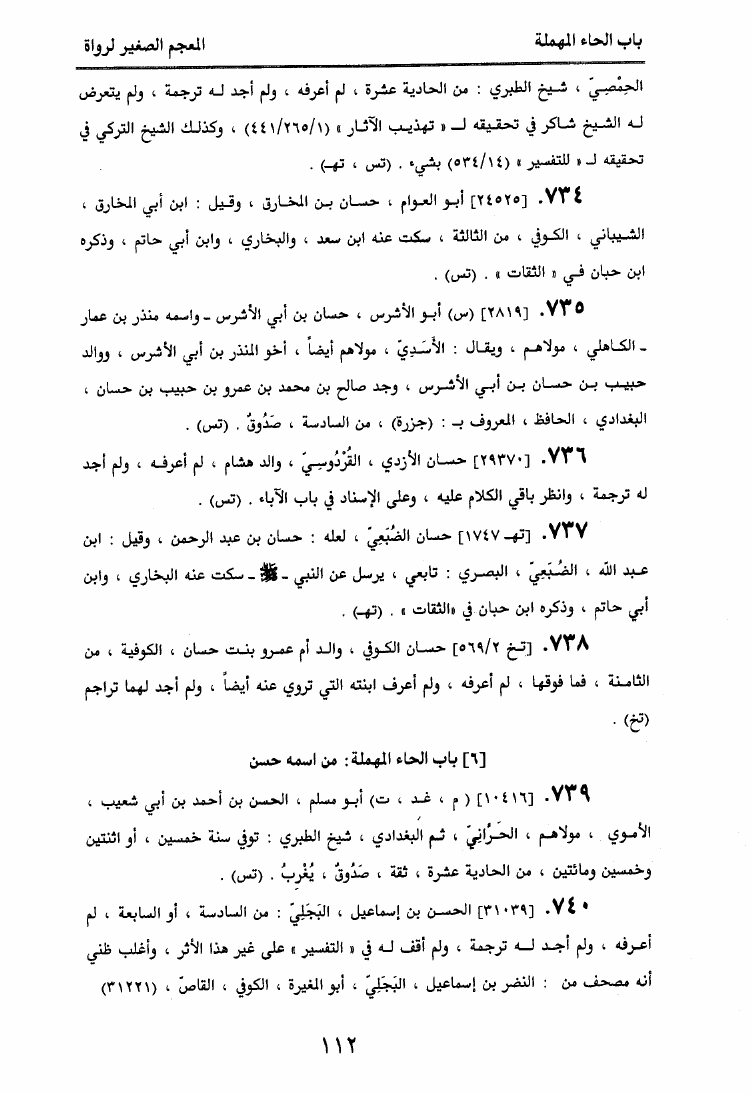 باب الحاء المهملة المعجم الصغير لرواة
الحِمْصِيّ ، شيخ الطبري : من الحادية عشرة ، لم أعرفه ، ولم أجد له ترجمة ، ولم يتعرض
له الشيخ شاكر في تحقيقه لـ « تهذيب الآثار » (٤٤١/٢٦٥/١) ، وكذلك الشيخ التركي في
تحقيقه لـ « للتفسير » (٥٣٤/١٤) بشيء . (تس ، تهـ) .
٧٣٤. [٢٤٥٢٥] أبو العوام ، حسان بن المخارق ، وقيل : ابن أبي المخارق ،
الشيباني ، الكوفي ، من الثالثة ، سكت عنه ابن سعد ، والبخاري ، وابن أبي حاتم ، وذكره
ابن حبان في « الثقات » . (تس) .
٧٣٥. [٢٨١٩] (س) أبو الأشرس ، حسان بن أبي الأشرس ـ واسمه منذر بن عمار
ـ الكاهلي ، مولاهم ، ويقال : الأَسَدِيّ ، مولاهم أيضاً ، أخو المنذر بن أبي الأشرس ، ووالد
حبيب بن حسان بن أبي الأشرس ، وجد صالح بن محمد بن عمرو بن حبيب بن حسان ،
البغدادي ، الحافظ ، المعروف بـ : (جزرة) ، من السادسة ، صَدُوقٌ . (تس) .
٧٣٦. [٢٩٣٧٠] حسان الأزدي ، القُرْدُوسِيّ ، والد هشام ، لم أعرفه ، ولم أجد
له ترجمة ، وانظر باقي الكلام عليه ، وعلى الإسناد في باب الآباء . (تس) .
٧٣٧. [تهـ ١٧٤٧] حسان الضُبَعِيّ ، لعله : حسان بن عبد الرحمن ، وقيل : ابن
عبد الله ، الضُبَعِيّ ، البصري : تابعي ، يرسل عن النبي ـ ﷺ ـ سكت عنه البخاري ، وابن
أبي حاتم ، وذكره ابن حبان في «الثقات » . (تهـ) .
٧٣٨. [تخ ٥٦٩/٢] حسان الكوفي ، والد أم عمرو بنت حسان ، الكوفية ، من
الثامنة ، فما فوقها ، لم أعرفه ، ولم أعرف ابنته التي تروي عنه أيضاً ، ولم أجد لهما تراجم
(تخ) .
[٦] باب الحاء المهملة: من اسمه حسن
٧٣٩. [١٠٤١٦] ( م ، غد ، ت) أبو مسلم ، الحسن بن أحمد بن أبي شعيب ،
الأموي ، مولاهم ، الحَرَّانِيّ ، ثم البغدادي ، شيخ الطبري : توفي سنة خمسين ، أو اثنتين
وخمسين ومائتين ، من الحادية عشرة ، ثقة ، صَدُوقٌ ، يُغْرِبُ . (تس) .
٧٤٠. [٣١٠٣٩] الحسن بن إسماعيل ، البَجَلِيّ : من السادسة ، أو السابعة ، لم
أعرفه ، ولم أجد له ترجمة ، ولم أقف له في « التفسير » على غير هذا الأثر ، وأغلب ظني
أنه مصحف من : النضر بن إسماعيل ، البَجَلِيّ ، أبو المغيرة ، الكوفي ، القاصّ ، (٣١٢٢١)
١١٢